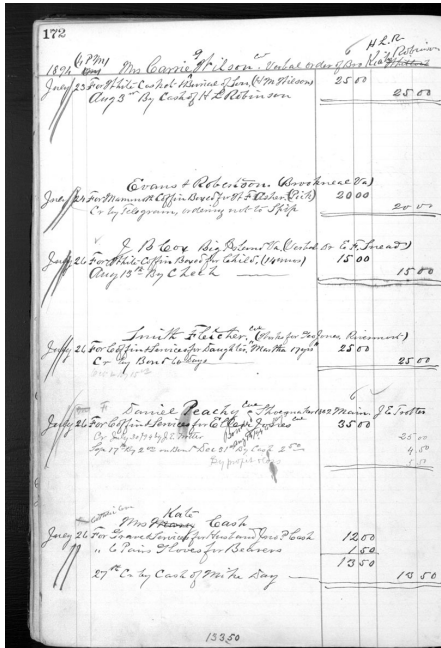 172
6 H L R
1894 Mrs Carrie Wilson Verbal order of Bro Robinson
July 23 For White Casket & Service of Son (H M Wilson) 25 00
Aug 3rd By Cash of H L Robinson 25 00
Evans & Robertson (Brookneal Va)
July 24 For Mammoth Coffin Boxed for W F Asher 20 00
Cr by Telegram, ordering not to Ship 20 00
J B Cox Big Island Va (Verbal Or E. H. Snead)
July 26 For White Coffin Boxed for Child (14 mos) 15 00
Aug 13th By Check 15 00
Smith Fletcher (Works for Geo Jones, Rivermont)
July 26 For Coffin & Services for Daughter Martha 17 yrs 25 00
Cr by Bond 60 Days 25 00
Daniel Peachy Main J E Trotter
July 26 For Coffin & Services for 35 00
Cr July 30/94 by J. E. Trotter 25 00
Sep 17th By Dec 31st By Cash 2 50 4 50
Kate
Mrs Cash
July 26 For Grave & Services for Husband Jas P Cash 12 00
" 6 Pairs Gloves for Bearers 1 50
13 50
27th Cr by Cash of Mike Day 13 50
133 50